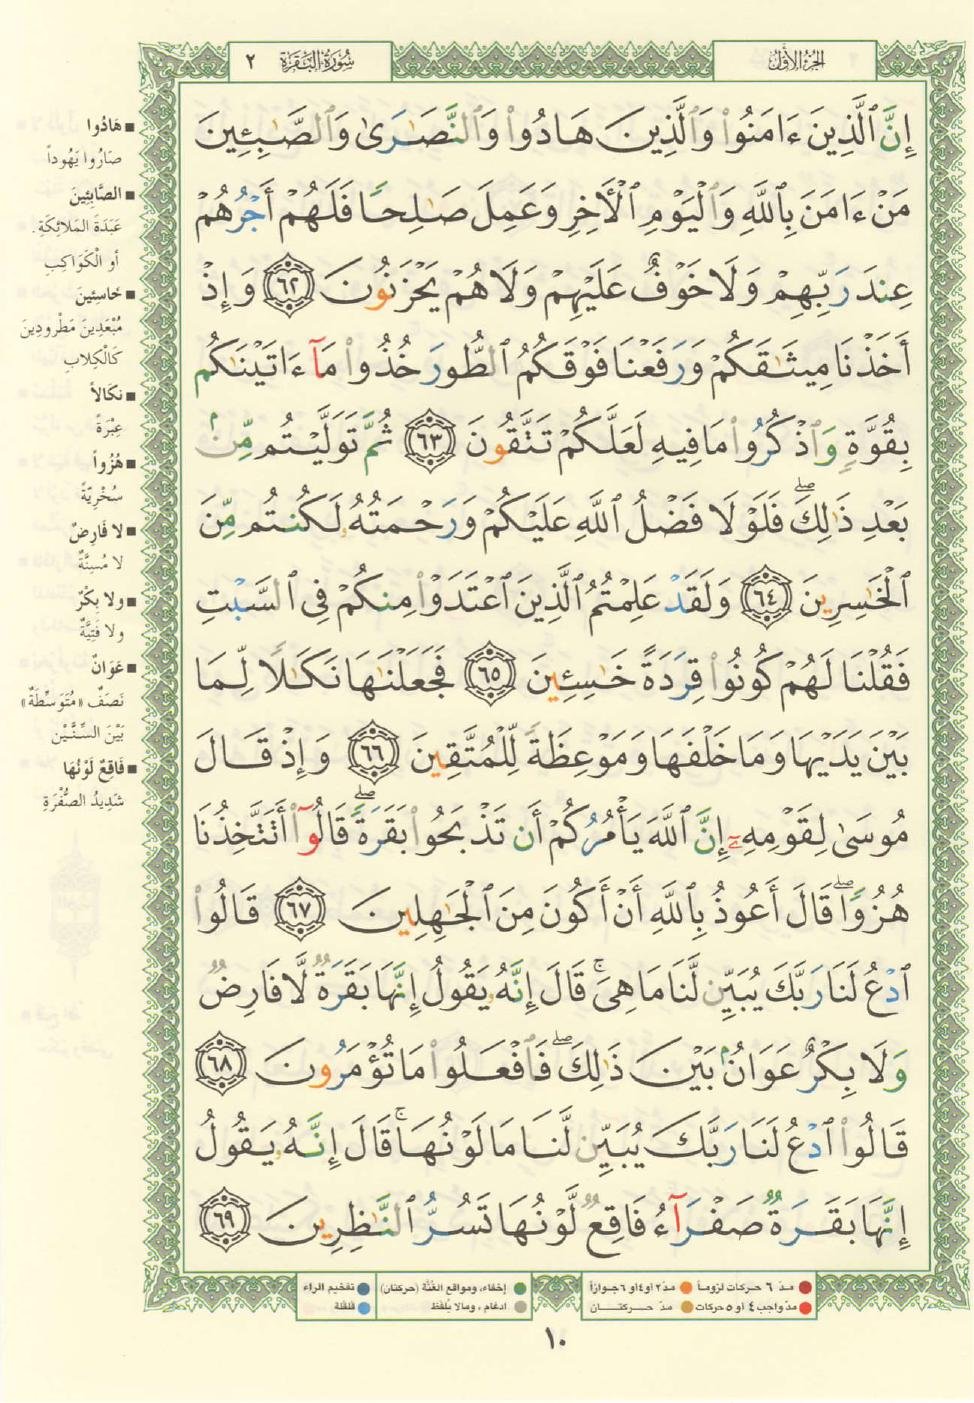 الجزء الأول
سورة البقرة ٢
إِنَّ ٱلَّذِينَ ءَامَنُوا۟ وَٱلَّذِينَ هَادُوا۟ وَٱلنَّصَٰرَىٰ وَٱلصَّٰبِـِٔينَ
مَنْ ءَامَنَ بِٱللَّهِ وَٱلْيَوْمِ ٱلْـَٔاخِرِ وَعَمِلَ صَٰلِحًا فَلَهُمْ أَجْرُهُمْ
عِندَ رَبِّهِمْ وَلَا خَوْفٌ عَلَيْهِمْ وَلَا هُمْ يَحْزَنُونَ ٦٢ وَإِذْ
أَخَذْنَا مِيثَٰقَكُمْ وَرَفَعْنَا فَوْقَكُمُ ٱلطُّورَ خُذُوا۟ مَآ ءَاتَيْنَٰكُم
بِقُوَّةٍ وَٱذْكُرُوا۟ مَا فِيهِ لَعَلَّكُمْ تَتَّقُونَ ٦٣ ثُمَّ تَوَلَّيْتُم مِّنۢ
بَعْدِ ذَٰلِكَ ۖ فَلَوْلَا فَضْلُ ٱللَّهِ عَلَيْكُمْ وَرَحْمَتُهُۥ لَكُنتُم مِّنَ
ٱلْخَٰسِرِينَ ٦٤ وَلَقَدْ عَلِمْتُمُ ٱلَّذِينَ ٱعْتَدَوْا۟ مِنكُمْ فِى ٱلسَّبْتِ
فَقُلْنَا لَهُمْ كُونُوا۟ قِرَدَةً خَٰسِـِٔينَ ٦٥ فَجَعَلْنَٰهَا نَكَٰلًا لِّمَا
بَيْنَ يَدَيْهَا وَمَا خَلْفَهَا وَمَوْعِظَةً لِّلْمُتَّقِينَ ٦٦ وَإِذْ قَالَ
مُوسَىٰ لِقَوْمِهِۦٓ إِنَّ ٱللَّهَ يَأْمُرُكُمْ أَن تَذْبَحُوا۟ بَقَرَةً ۖ قَالُوٓا۟ أَتَتَّخِذُنَا
هُزُوًا ۖ قَالَ أَعُوذُ بِٱللَّهِ أَنْ أَكُونَ مِنَ ٱلْجَٰهِلِينَ ٦٧ قَالُوا۟
ٱدْعُ لَنَا رَبَّكَ يُبَيِّن لَّنَا مَا هِىَ ۚ قَالَ إِنَّهُۥ يَقُولُ إِنَّهَا بَقَرَةٌ لَّا فَارِضٌ
وَلَا بِكْرٌ عَوَانٌۢ بَيْنَ ذَٰلِكَ ۖ فَٱفْعَلُوا۟ مَا تُؤْمَرُونَ ٦٨
قَالُوا۟ ٱدْعُ لَنَا رَبَّكَ يُبَيِّن لَّنَا مَا لَوْنُهَا ۚ قَالَ إِنَّهُۥ يَقُولُ
إِنَّهَا بَقَرَةٌ صَفْرَآءُ فَاقِعٌ لَّوْنُهَا تَسُرُّ ٱلنَّٰظِرِينَ ٦٩
■ هَادُوا
صَارُوا يَهُوداً
■ الصَّابِئِينَ
عَبَدَةَ المَلائِكَةِ.
أو الْكَوَاكِبِ
■ خَاسِئِينَ
مُبْعَدِينَ مَطْرودِينَ
كَالْكِلابِ
■ نَكَالاً
عِبْرَةً
■ هُزُواً
سُخْرِيَّةً
■ لا فَارِضٌ
لا مُسِنَّةٌ
■ ولا بِكْرٌ
ولا فَتِيَّةٌ
■ عَوَانٌ
نَصَفٌ «مُتَوَسِّطَةٌ»
بَيْنَ السِّنَّيْنِ
■ فَاقِعٌ لَوْنُهَا
شَدِيدُ الصُّفْرَةِ
مدّ ٦ حركات لزوماً مدّ٢ أو٤أو ٦جوازاً
مدّ واجب ٤ أو ٥ حركات مدّ حركتان
إخفاء، ومواقع الغُنَّة (حركتان) تفخيم الراء
ادغام ، ومالا يُلفَظ قلقلة
١٠